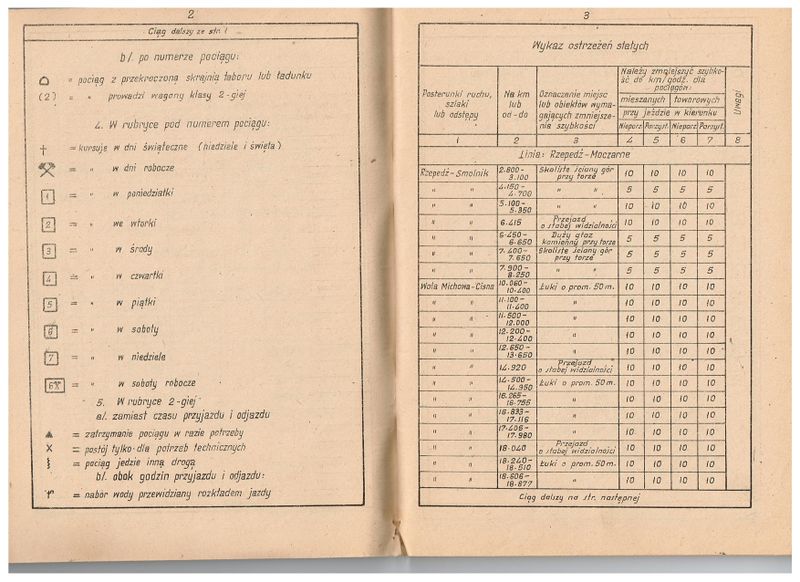 2
Ciąg dalszy ze str. 1
b/. po numerze pociągu:
= pociąg z przekroczoną skrajnią taboru lub ładunku
(2) = " prowadzi wagony klasy 2-giej
4. W rubryce pod numerem pociągu:
† = kursuje w dni świąteczne (niedziele i święta)
= " w dni robocze
1 = " w poniedziałki
2 = " we wtorki
3 = " w środy
4 = " w czwartki
5 = " w piątki
6 = " w soboty
7 = " w niedziele
6 = " w soboty robocze
5. W rubryce 2-giej
a/. zamiast czasu przyjazdu i odjazdu
▲ = zatrzymanie pociągu w razie potrzeby
X = postój tylko dla potrzeb technicznych
= pociąg jedzie inną drogą
b/. obok godzin przyjazdu i odjazdu:
= nabór wody przewidziany rozkładem jazdy
3
Wykaz ostrzeżeń stałych
Posterunki ruchu, szlaki lub odstępy
Na km lub od-do
Oznaczenie miejsc lub obiektów wymagających zmniejszenia szybkości
Należy zmniejszyć szybkość do km/godz. dla pociągów:
mieszanych towarowych
przy jeździe w kierunku
Nieparz. Parzyst. Nieparz. Parzyst.
Uwagi
1 2 3 4 5 6 7 8
Linia: Rzepedź-Moczarne
Rzepedź-Smolnik 2.800-3.100 Skaliste ściany gór przy torze 10 10 10 10
" " 4.150-4.700 " " 5 5 5 5
" " 5.100-5.350 " " 10 10 10 10
" " 6.415 Przejazd o słabej widzialności 10 10 10 10
" " 6.450-6.650 Duży głaz kamienny przy torze 5 5 5 5
" " 7.400-7.650 Skaliste ściany gór przy torze 5 5 5 5
" " 7.900-8.250 " " 5 5 5 5
Wola Michowa-Cisna 10.060-10.400 Łuki o prom. 50 m. 10 10 10 10
" " 11.100-11.400 " 10 10 10 10
" " 11.500-12.000 " 10 10 10 10
" " 12.200-12.400 " 10 10 10 10
" " 12.650-13.650 " 10 10 10 10
" " 14.920 Przejazd o słabej widzialności 10 10 10 10
" " 14.500-14.950 Łuki o prom. 50 m. 10 10 10 10
" " 16.265-16.755 " 10 10 10 10
" " 16.833-17.116 " 10 10 10 10
" " 17.406-17.980 " 10 10 10 10
" " 18.040 Przejazd o słabej widzialności 10 10 10 10
" " 18.240-18.510 Łuki o prom. 50 m. 10 10 10 10
" " 18.606-18.877 " 10 10 10 10
Ciąg dalszy na str. następnej